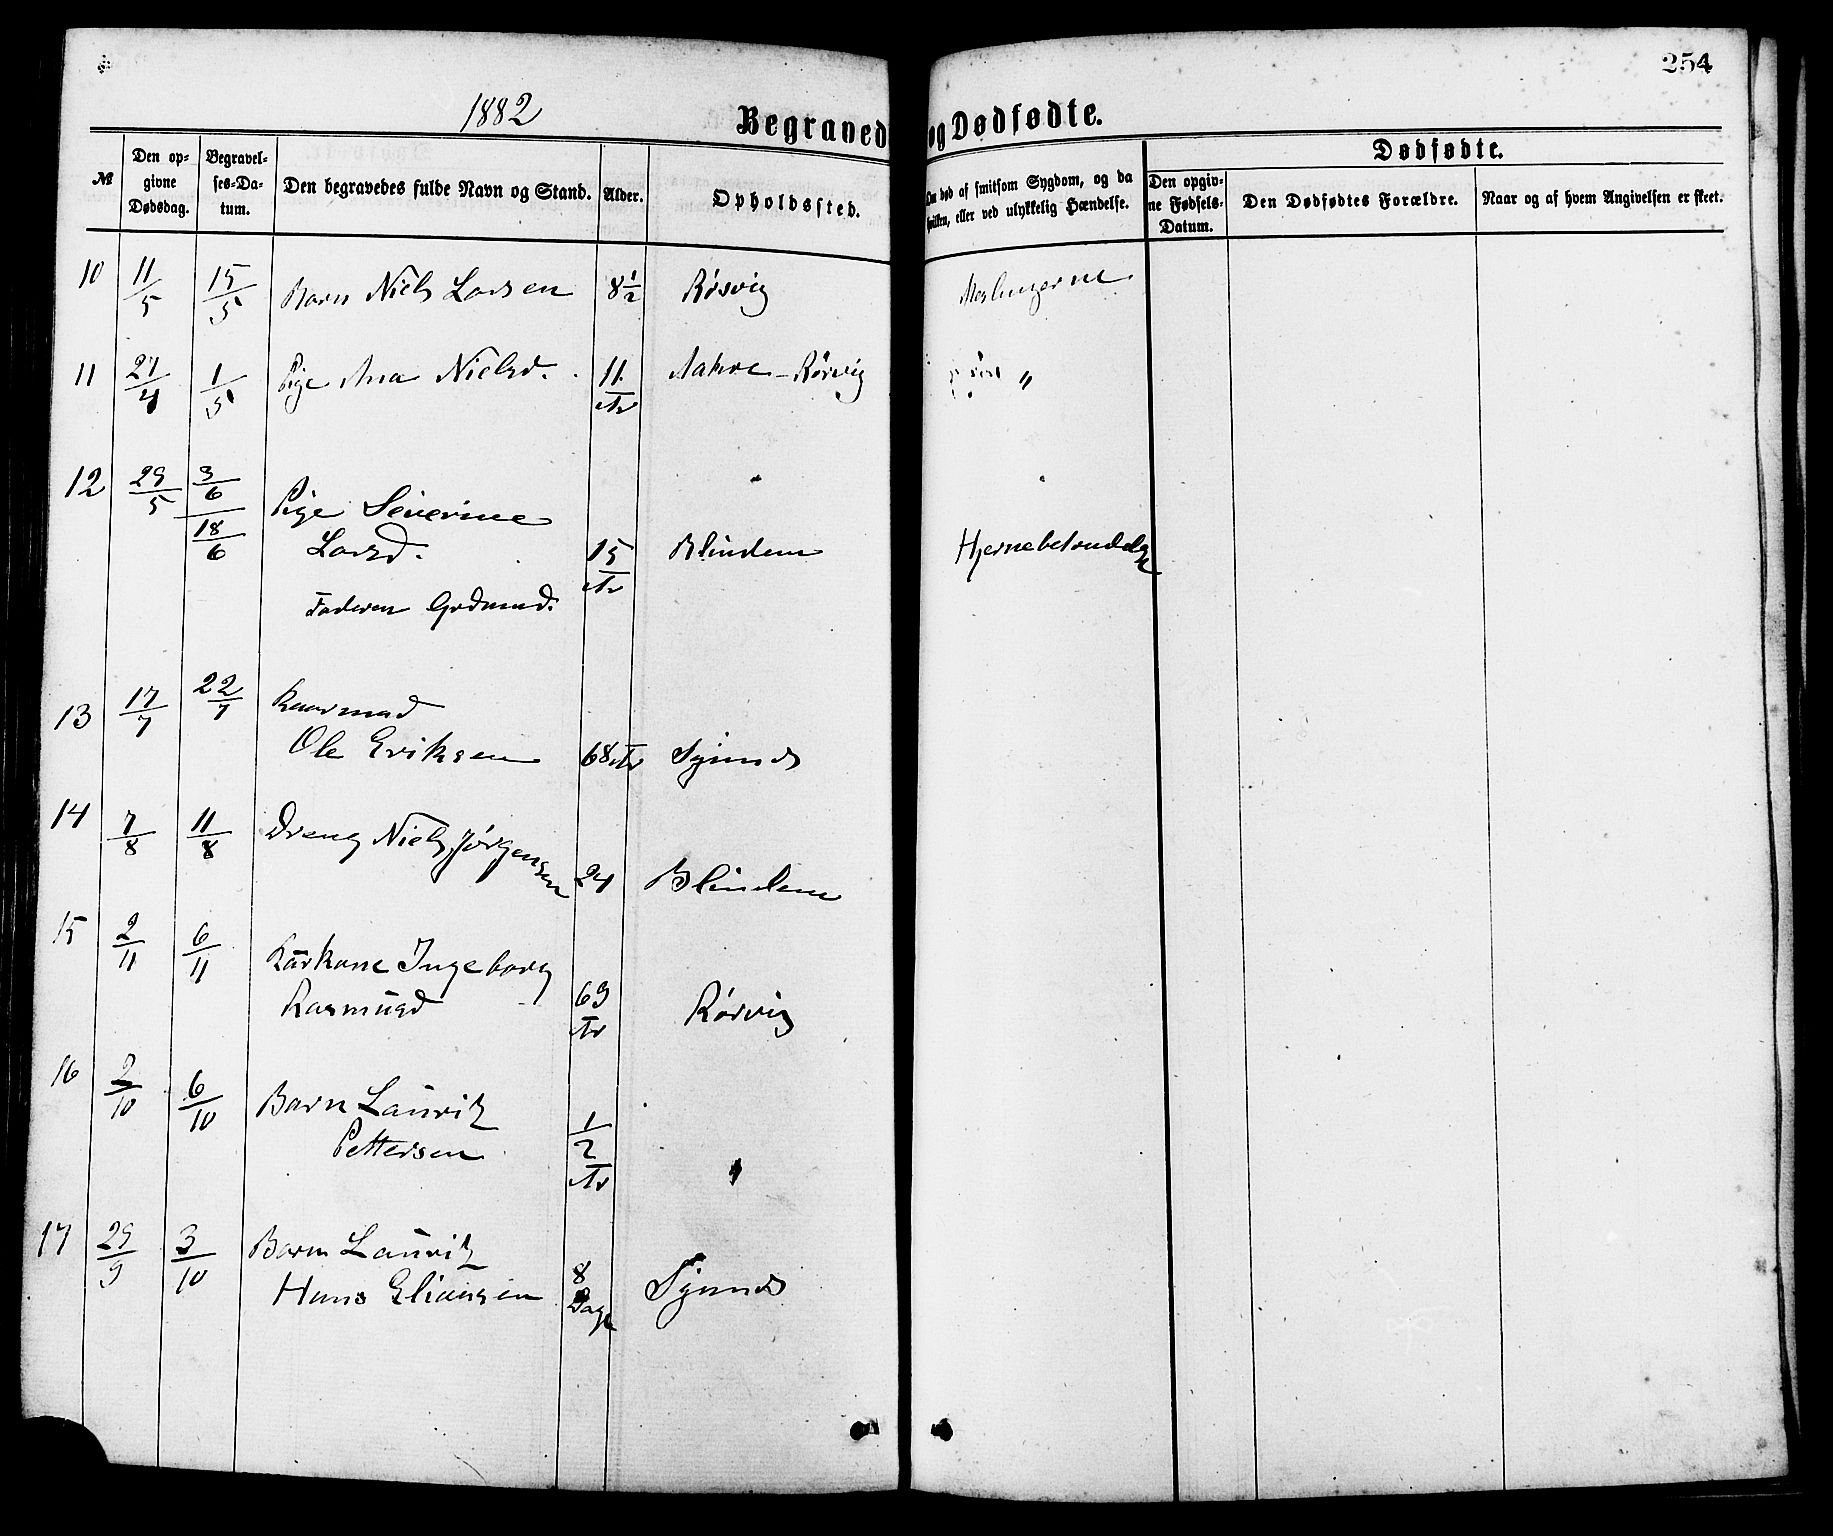 254
1882
Begravede og Dødfødte.
Dødfødte.
№
Den opgivne Dødsdag.
Begravelses-Datum.
Den begravedes fulde Navn og Stand.
Alder.
Opholdssted.
Om død af smitsom Sygdom, og da hvilken, eller ved ulykkelig Hændelse.
Den opgivne Fødsels-Datum.
Den Dødfødtes Forældre.
Naar og af hvem Angivelsen er skeet.
10 11/5 15/5 Barn Niels Larsen 8 1/2 Rørvig Meslingerne
11 27/4 1/5 Pige Ana Nielsd. 11 Ar Aahre - Rørvig "
12 29/5 3/6 18/6 Pige Severine
Larsd. 15 Ar Blindem Hjernebetændelse
Faderen Gudmund.
13 17/7 22/7 Kaarmad
Ole Eriksen 68 Ar Synnes
14 7/8 11/8 Dreng Niels Jørgensen 24 Blindem
15 2/11 6/11 Kårkone Ingeborg
Rasmusd 69 Ar Rørvig
16 2/10 6/10 Barn Lauritz
Pettersen 1/2 Ar "
17 29/9 3/10 Barn Lauritz
Hans Eliassen 8 Dage Synnes